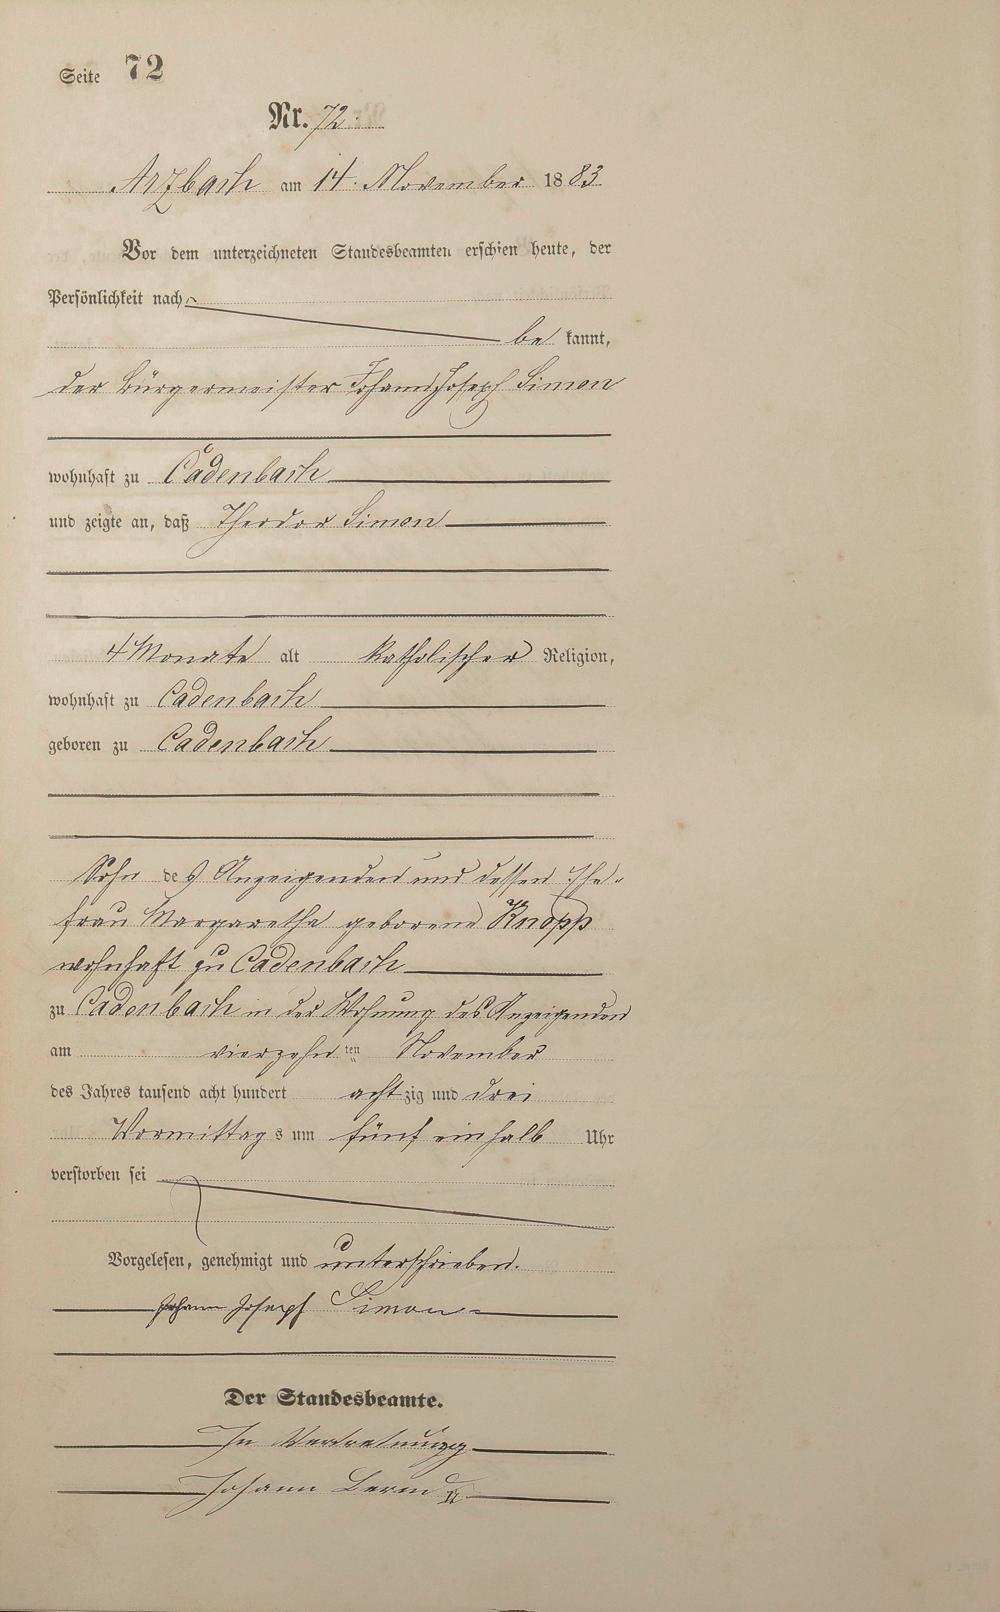 Seite 72
Nr. 72.
Arzbach am 14. November 1883
Vor dem unterzeichneten Standesbeamten erschien heute, der
Persönlichkeit nach
be kannt,
der Bürgermeister Johann Joseph Simon
wohnhaft zu Cadenbach
und zeigte an, daß Theodor Simon
4 Monate alt katholischer Religion,
wohnhaft zu Cadenbach
geboren zu Cadenbach
Sohn des Anzeigenden und dessen Ehe-
frau Margaretha geborene Knopp
wohnhaft zu Cadenbach
zu Cadenbach in der Wohnung des Anzeigenden
am vierzehn ten November
des Jahres tausend acht hundert achtzig und drei
Vormittags um fünf einhalb Uhr
verstorben sei
Vorgelesen, genehmigt und unterschrieben.
Johann Joseph Simon
Der Standesbeamte.
In Vertretung
Johann